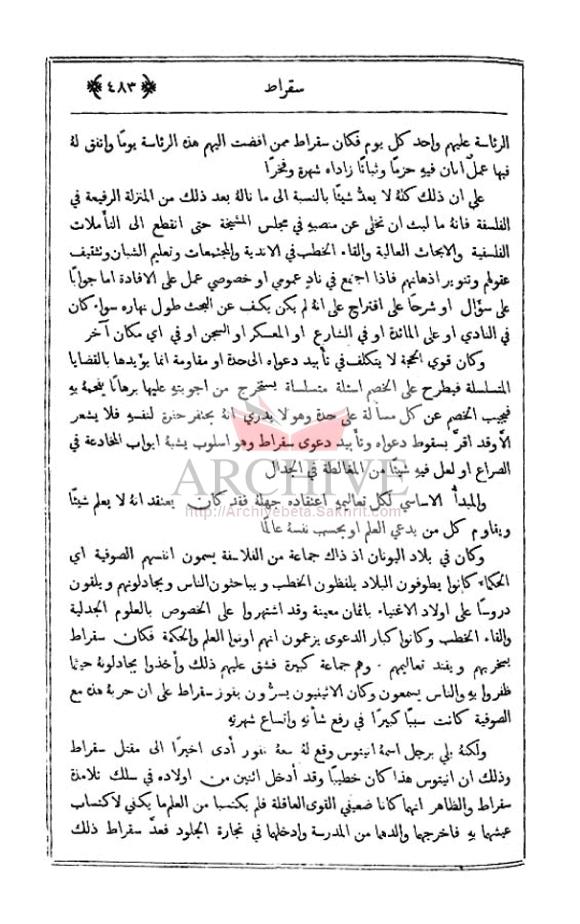 سقراط ﴿٤٨٣﴾
الرئاسة عليهم واحد كل يوم فكان سقراط ممن افضت اليهم هذه الرئاسة يومًا واتفق لهُ
فيها عملٌ ابان فيهِ حزمًا وثباتًا زاداه شهرة وفخرًا
على ان ذلك كلهُ لا يعدُّ شيئًا بالنسبة الى ما نالهُ بعد ذلك من المنزلة الرفيعة في
الفلسفة فانهُ ما لبث ان تخلى عن منصبهِ في مجلس المشيخة حتى انقطع الى التأملات
الفلسفية والابحاث العالية والقاء الخطب في الاندية والمجتمعات وتعليم الشبان وتثقيف
عقولهم وتنوير اذهانهم فاذا اجتمع في نادٍ عمومي او خصوصي عمل على الافادة اما جوابًا
على سؤال او شرحًا على اقتراح على انهُ لم يكن يكف عن البحث طول نهاره سواء كان
في النادي او على المائدة او في الشارع او المعسكر او السجن او في اي مكان آخر
وكان قوي الحجة لا يتكلف في تأييد دعواه الى حدة او مقاومة انما يؤيدها بالقضايا
المتسلسلة فيطرح على الخصم اسئلة متسلسلة يستخرج من اجوبتهِ عليها برهانًا يفحمهُ بهِ
فيجيب الخصم عن كل مسألة على حدة وهو لا يدري انهُ يحتفر حفرة لنفسهِ فلا يشعر
الَّا وقد اقرَّ بسقوط دعواه وتأييد دعوى سقراط وهو اسلوب يشبه ابواب المخادعة في
الصراع او لعل فيهِ شيئًا من المغالطة في الجدال
والمبدأ الاساسي لكل تعاليمهِ اعتقاده جهلهُ فقد كان يعتقد انهُ لا يعلم شيئًا
ويقاوم كل من يدعي العلم او يحسب نفسهُ عالمًا
وكان في بلاد اليونان اذ ذاك جماعة من الفلاسفة يسمون انفسهم الصوفية اي
الحكماء كانوا يطوفون البلاد يلفظون الخطب و يباحثون الناس ويجادلونهم ويلقون
دروسًا على اولاد الاغنياء باثمان معينة وقد اشتهروا على الخصوص بالعلوم الجدلية
والقاء الخطب وكانوا كبار الدعوى يزعمون انهم اوتوا العلم والحكمة فكان سقراط
يسخر بهم و يفند تعاليمهم . وهم جماعة كبيرة فشق عليهم ذلك وأخذوا يجادلونهُ حيثما
ظفروا بهِ والناس يسمعون وكان الاثينيون يسرُّون بفوز سقراط على ان حربهُ هذه مع
الصوفية كانت سببًا كبيرًا في رفع شأنهِ واتساع شهرتهِ
ولكنهُ بلي برجل اسمهُ انيتوس وقع لهُ معهُ نفور أدى اخيرًا الى مقتل سقراط
وذلك ان انيتوس هذا كان خطيبًا وقد أدخل اثنين من اولاده في سلك تلامذة
سقراط والظاهر انهما كانا ضعيفي القوى العاقلة فلم يكتسبا من العلم ما يكفي لاكتساب
عيشهما بهِ فاخرجها والدهما من المدرسة وادخلها في تجارة الجلود فعدَّ سقراط ذلك
ARCHIVE
http://Archivebeta.Sakhrit.com